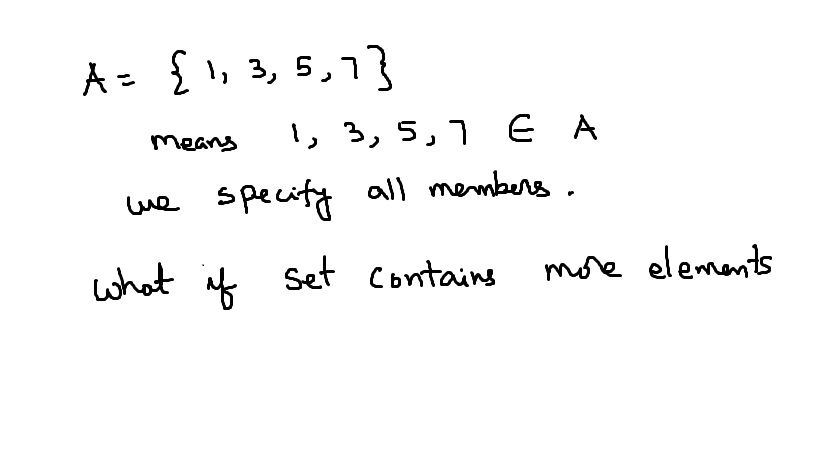 A = { 1, 3, 5, 7 }
means 1, 3, 5, 7 ∈ A
we specify all members.
what if set contains more elements